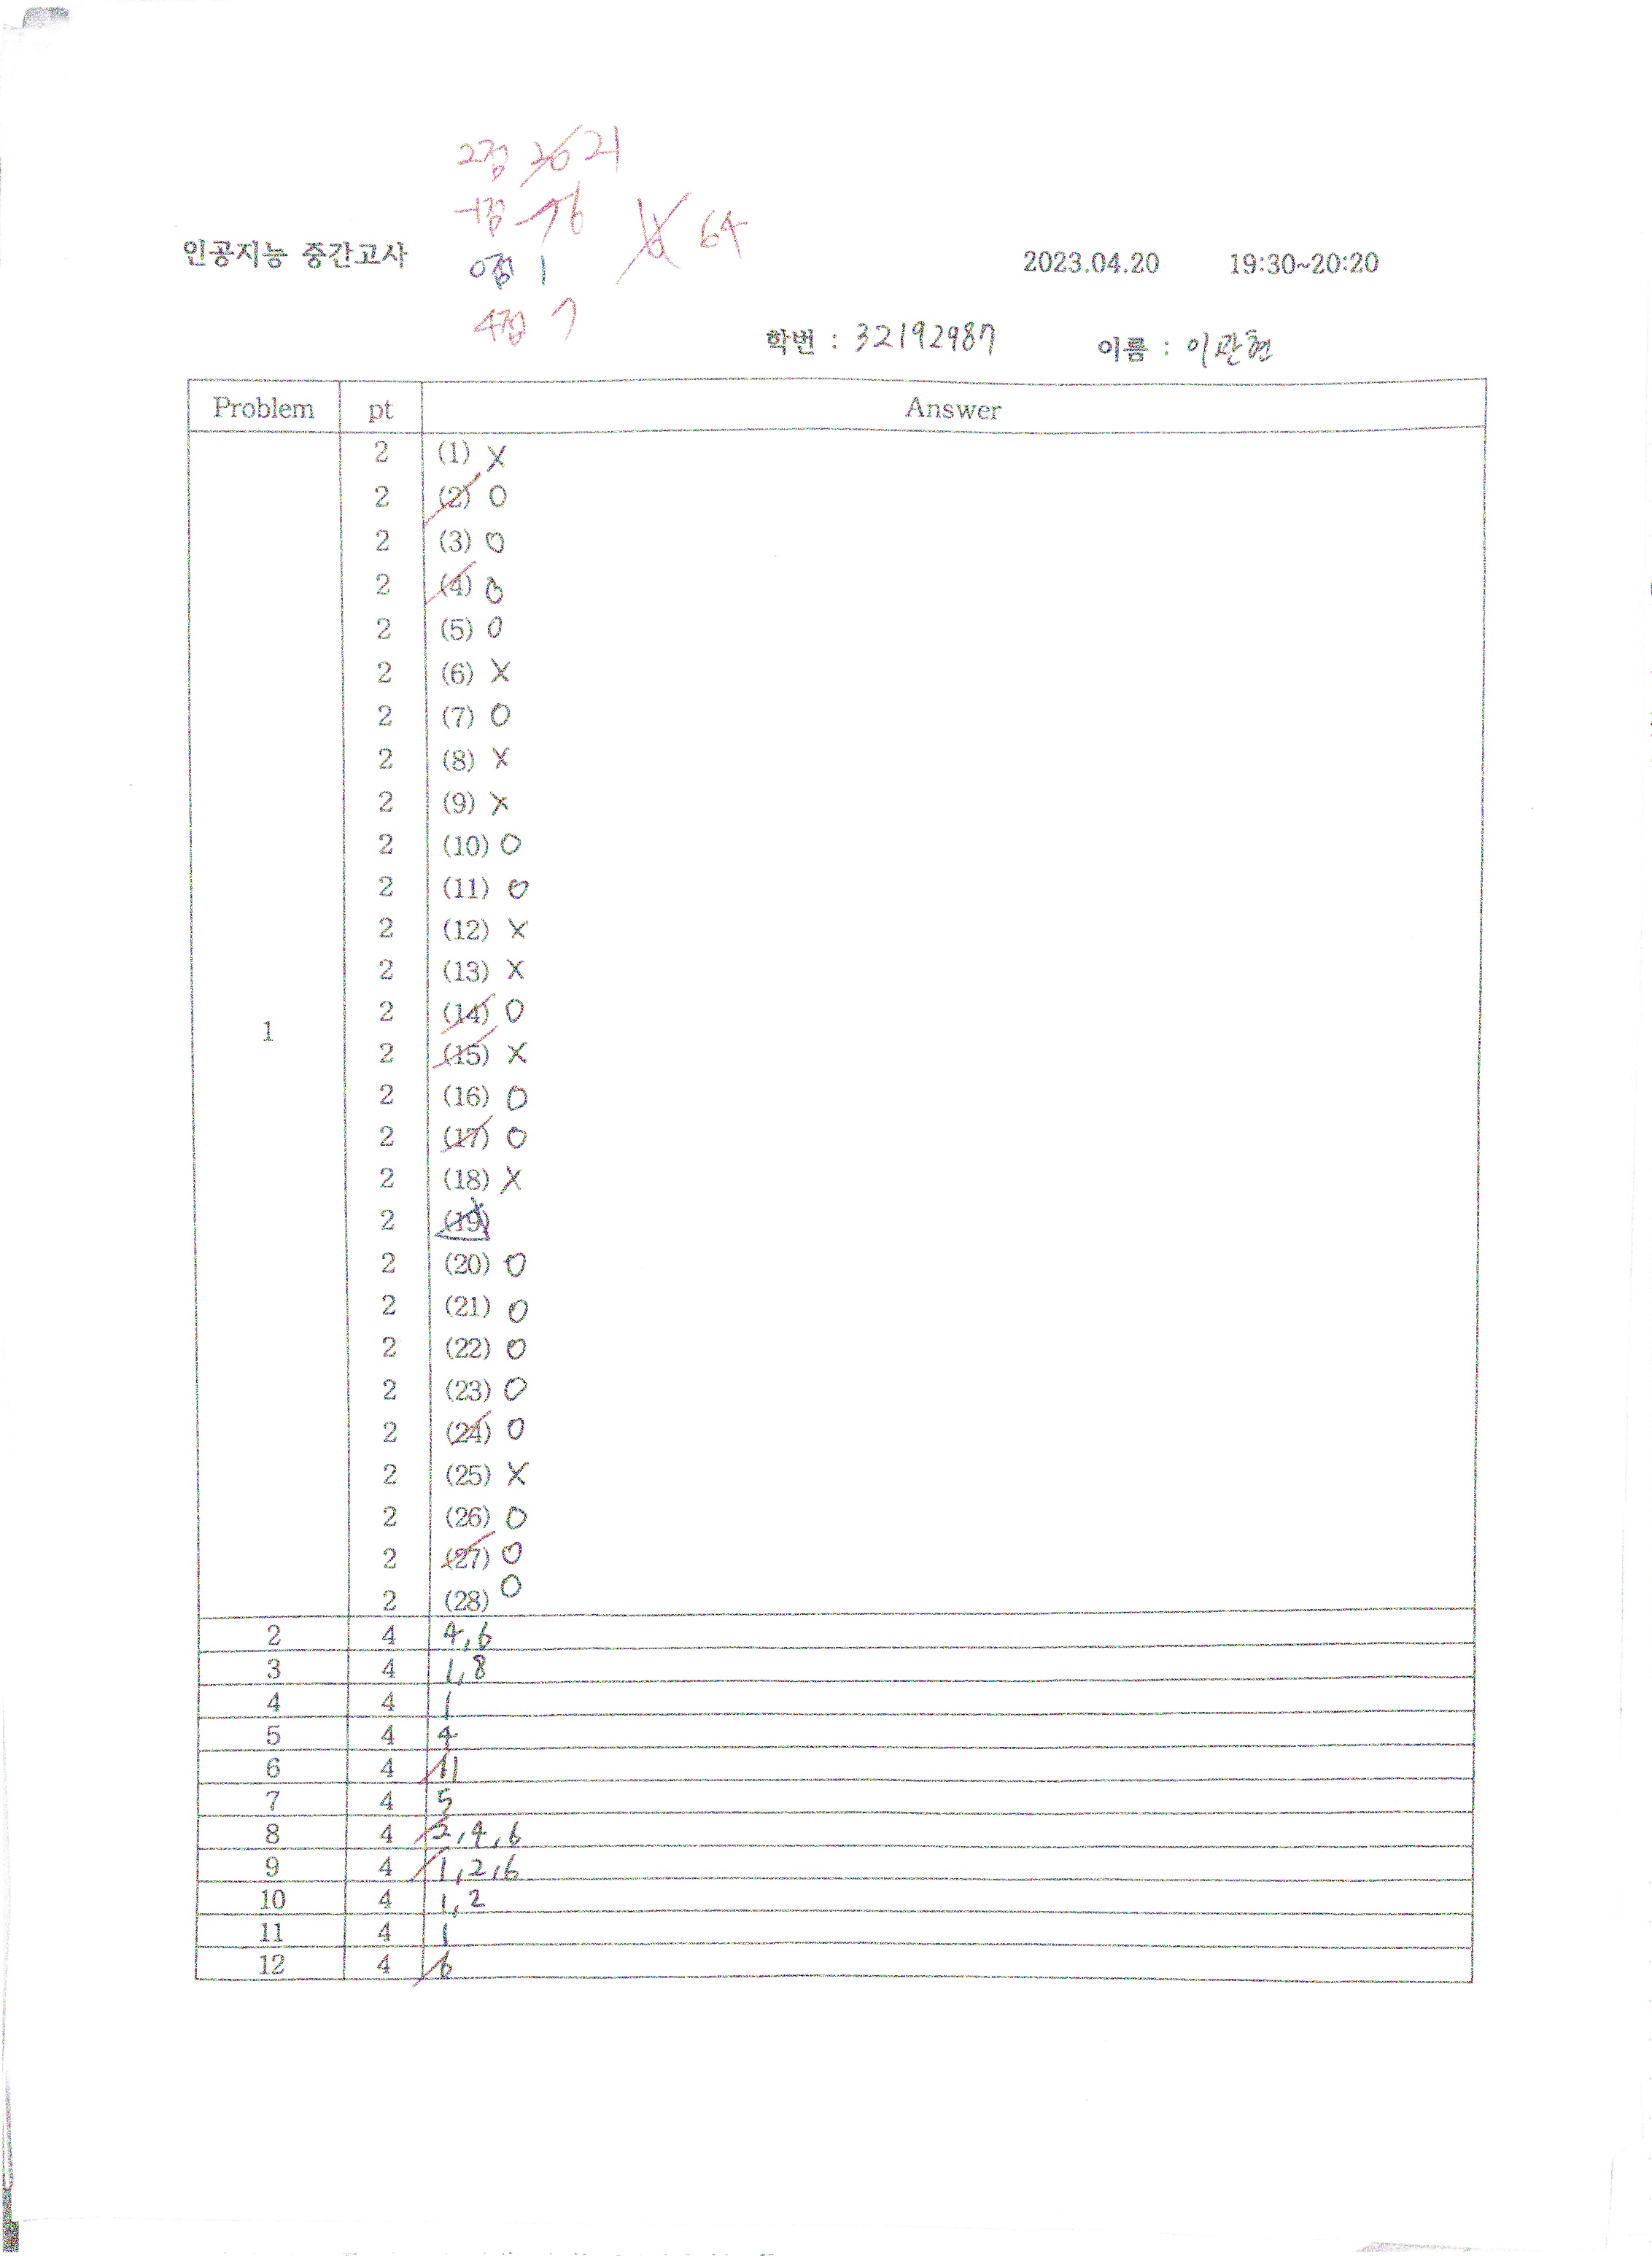 2점 21
-1점 -6 64
인공지능 중간고사 0점 1 2023.04.20 19:30~20:20
4점 7
학번 : 32192987 이름 : 이관현
Problem pt Answer
2 (1) X
2 (2) O
2 (3) O
2 (4) O
2 (5) O
2 (6) X
2 (7) O
2 (8) X
2 (9) X
2 (10) O
2 (11) O
2 (12) X
2 (13) X
2 (14) O
1 2 (15) X
2 (16) O
2 (17) O
2 (18) X
2 (19)
2 (20) O
2 (21) O
2 (22) O
2 (23) O
2 (24) O
2 (25) X
2 (26) O
2 (27) O
2 (28) O
2 4 4,6
3 4 1,8
4 4 1
5 4 4
6 4 11
7 4 5
8 4 2,4,6
9 4 1,2,6
10 4 1,2
11 4 1
12 4 6